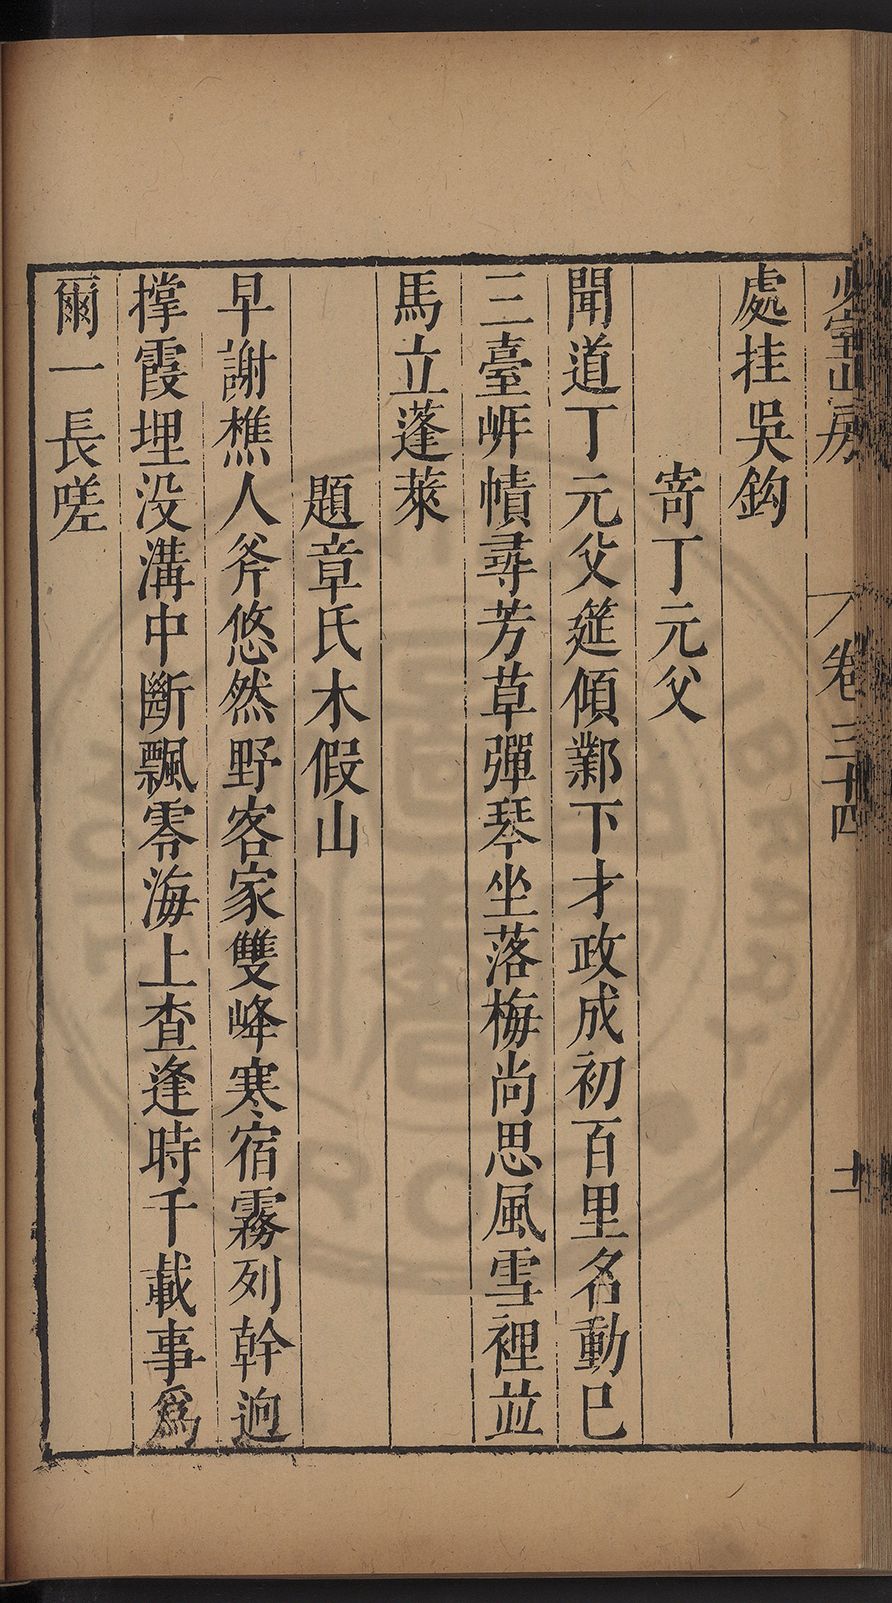 少室山房 卷三十四 十一
處挂吳鈎
寄丁元父
聞道丁元父筵傾鄴下才政成初百里名動巳
三臺岸幘尋芳草彈琴坐落梅尚思風雪裡並
馬立蓬萊
題章氏木假山
早謝樵人斧悠然野客家雙峰寒宿霧列幹逈
撑霞埋没溝中斷飄零海上查逢時千載事爲
爾一長嗟